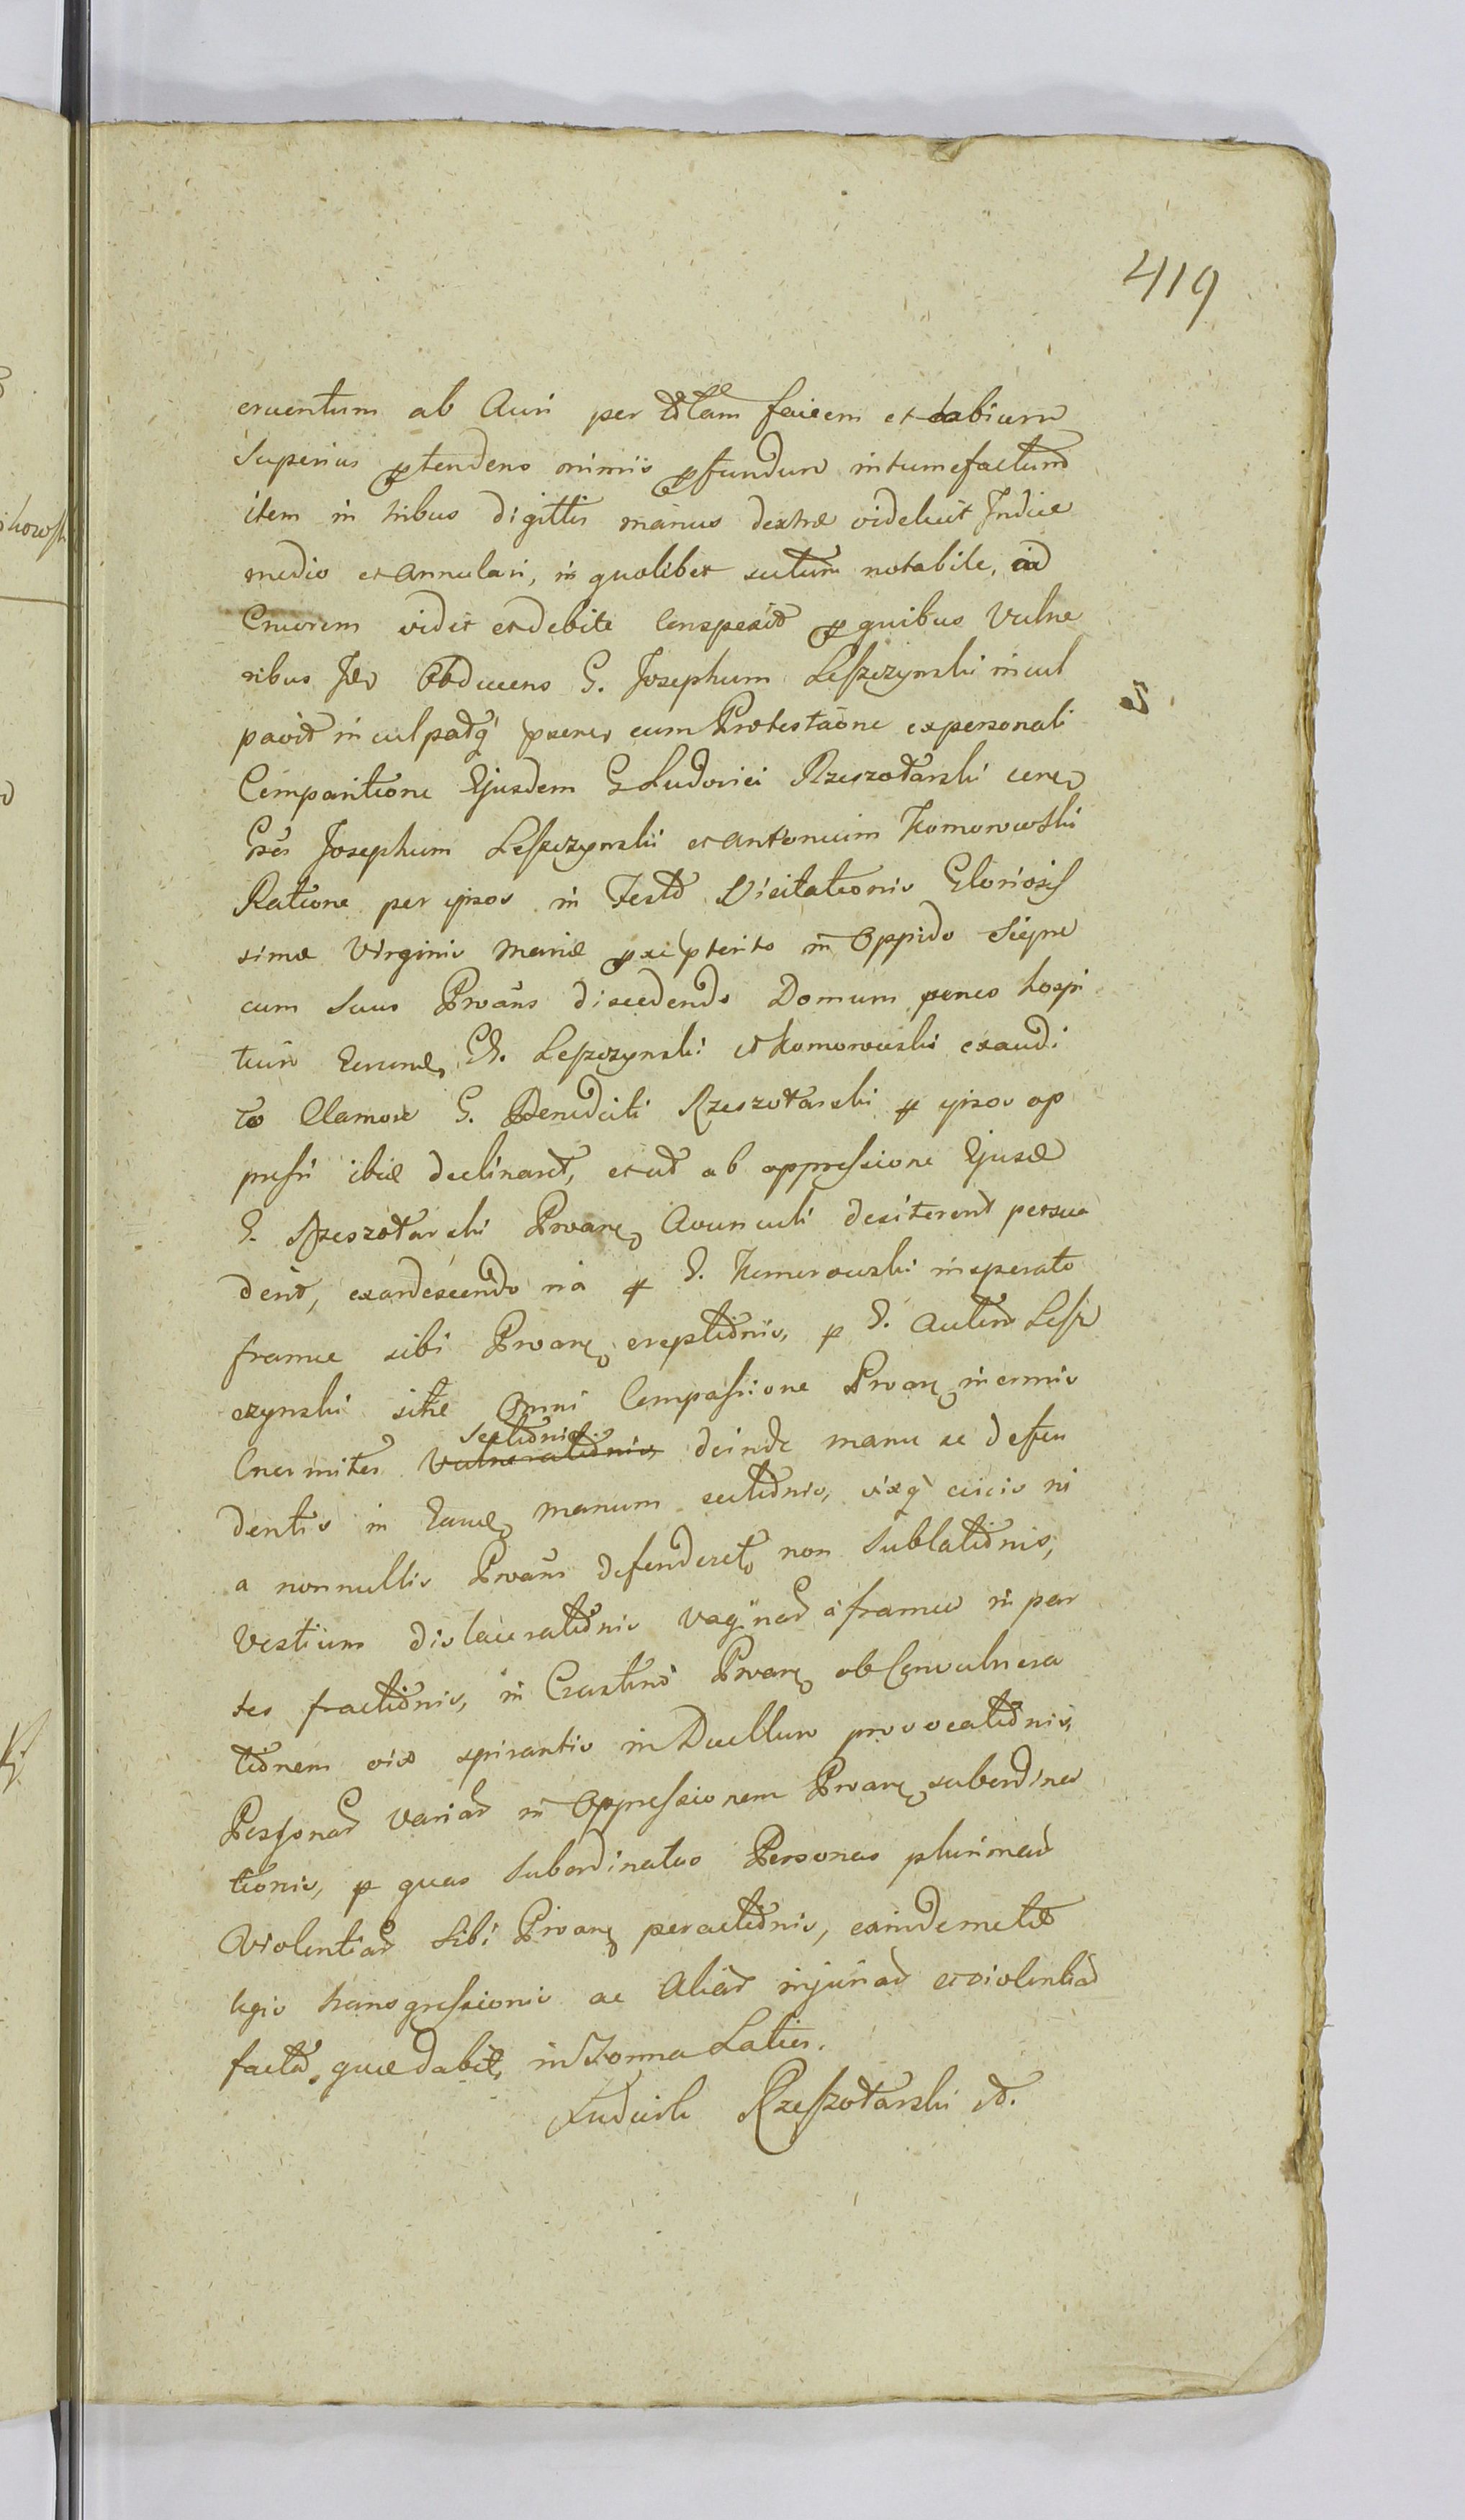 419
cruentum ab Auri per totam faciem et labium
Superius ptendens nimis pfundum intumefactum
item in tribus digittis manus dextræ videlicet Indice
medio et annulari, in quolibet sectum notabile, ad
Cruorem vidit et debite Conspexit p quibus Vulne
ribus Idem Obducens G. Josephum Leszczynski incul
pavit inculpatq́ pnner cum Protestaone ex personali
Comparitione Ejusdem G Ludovici Rzeszotarski cone
Gses Josephum Leszczynski et antonium Komorowski
Ratione per ipsos in Festo Visitationis Gloriosis
simæ Virginis Mariæ pxe pterito in Oppido Siepre
cum Suus Proans discedendo Domum penes hospi
tium Eorund. GG. Leszczynski et Komorowski exaudi
to Clamore G. Benedicti Rzeszotarski p ipsos op
pressi ibid declinaret, et ut ab oppressione Ejusd
G. Rzeszotarski Proane Avunculi desisterent persua
dent, exardescendo ira p G. Komorowski insperato
framee sibi Proane ereptionis, p G. Autem Lesz
czynski sine Omni Compassione Proane inermis
Enormiter Vulnerationis Sectionis deinde manu se defen
dentis in Eand manum sectionis, vixq́ eicis ni
a nonnullis Proans defenderet non Sublationis,
Vestium dislacerationis vaginæ a framea in par
tes fractionis, in Crastino Proane ob Convulnera
tionem vix spirantis in Duellum provocationis,
Personas varias in Oppressionem Proane subordina
tionis, p quas Subordinatas Personas plurimas
Violentias Sibi Proane peractionis, eandemet
legis transgressionis ac Alias injurias et violentias
factas. quæ dabit, in Forma Latior.
Ludwik Rzeszotarski